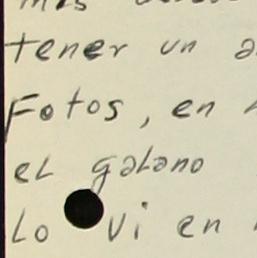 tener un a
Fotos, en
el galano
Lo vi en